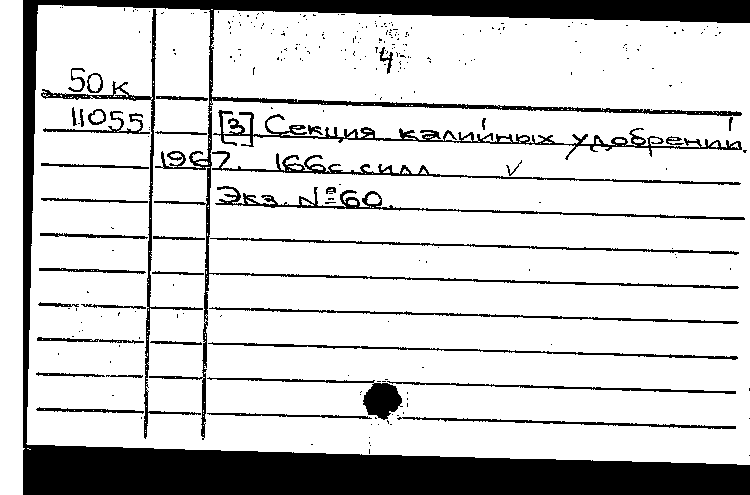 4
50 к
11055 [3] Секция калийных удобрений.
1967. 166с. силл
Экз. №60.